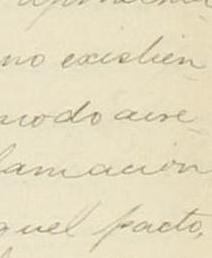 no existien
modo aire
lamacion
quel pacto,